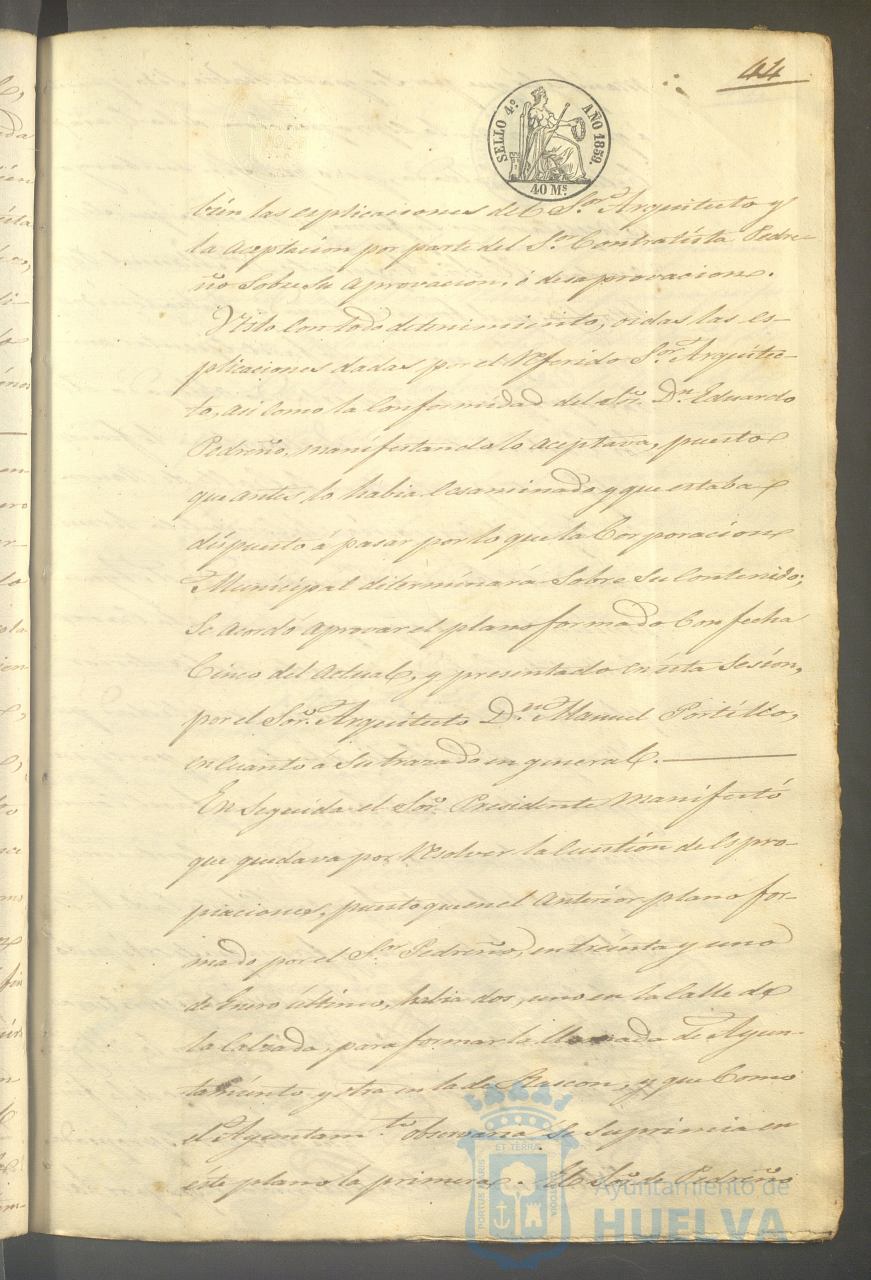 44
SELLO 4.º AÑO 1859.
40 M.s
bién las esplicaciones del S.or Arquitecto y
la aceptacion por parte del S.or Contratista Pedre-
ño sobre su aprovacion, ó desaprovacion.
Visto con todo detenimiento, oidas las es-
plicaciones dadas por el referido S.or Arquitec-
to, asi como la conformidad del Sor. D.n Eduardo
Pedreño, manifestando lo aceptava, puesto
que antes lo habia ecsaminado y que estaba
dispuesto á pasar por lo que la Corporacion
Municipal diterminará sobre su contenido;
se acordó aprovar el plano formado con fecha
cinco del actual, y presentado en ésta sesion,
por el Sor. Arquitecto D.n Manuel Portillo,
en cuanto á su trazado en general.
En seguida el Sor. Presidente manifestó
que quedava por resolver la cuestión de Espro-
piaciones, puesto que en el anterior plano for-
mado por el S.or Pedreño, en treinta y uno
de Enero último, habia dos, uno en la Calle de
la Calzada, para formar la llamada de Ayun-
tamiento y otra en la de Rascon, y que como
el Ayuntam.to observaria se suprimia en
éste plano la primera. El Sor. de Pedreño
PORTUS MARIS ET TERRÆ CUSTODIA
Ayuntamiento de
HUELVA